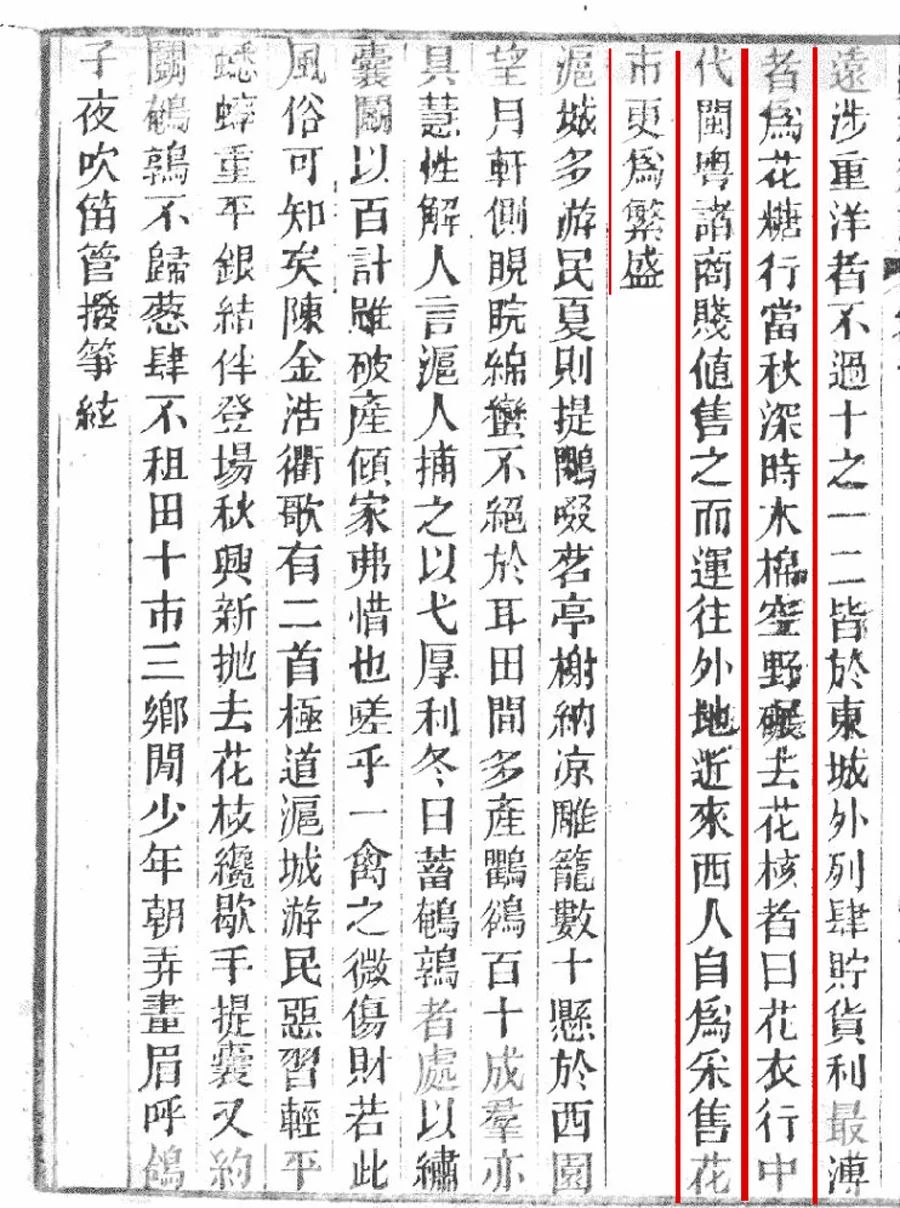 遠涉重洋者不過十之一二皆於東城外列肆貯貨利最溥
者爲花糖行當秋深時木棉空野碾去花核者曰花衣行中
代閩粤諸商賤值售之而運往外地近來西人自爲采售花
市更爲繁盛
滬城多游民夏則提鷳啜茗亭榭納凉雕籠數十懸於西園
望月軒側睍睆綿蠻不絕於耳田間多產鸜鵒百十成羣亦
具慧性解人言滬人捕之以弋厚利冬日蓄鵪鶉者處以繡
囊鬭以百計雖破產傾家弗惜也嗟乎一禽之微傷財若此
風俗可知矣陳金浩衢歌有二首極道滬城游民惡習輕平
蟋蟀重平銀結伴登場秋興新拋去花枝纔歇手提囊又約
鬭鵪鶉不歸葱肆不租田十市三鄉閒少年朝弄畫眉呼鴿
子夜吹笛管撥筝絃